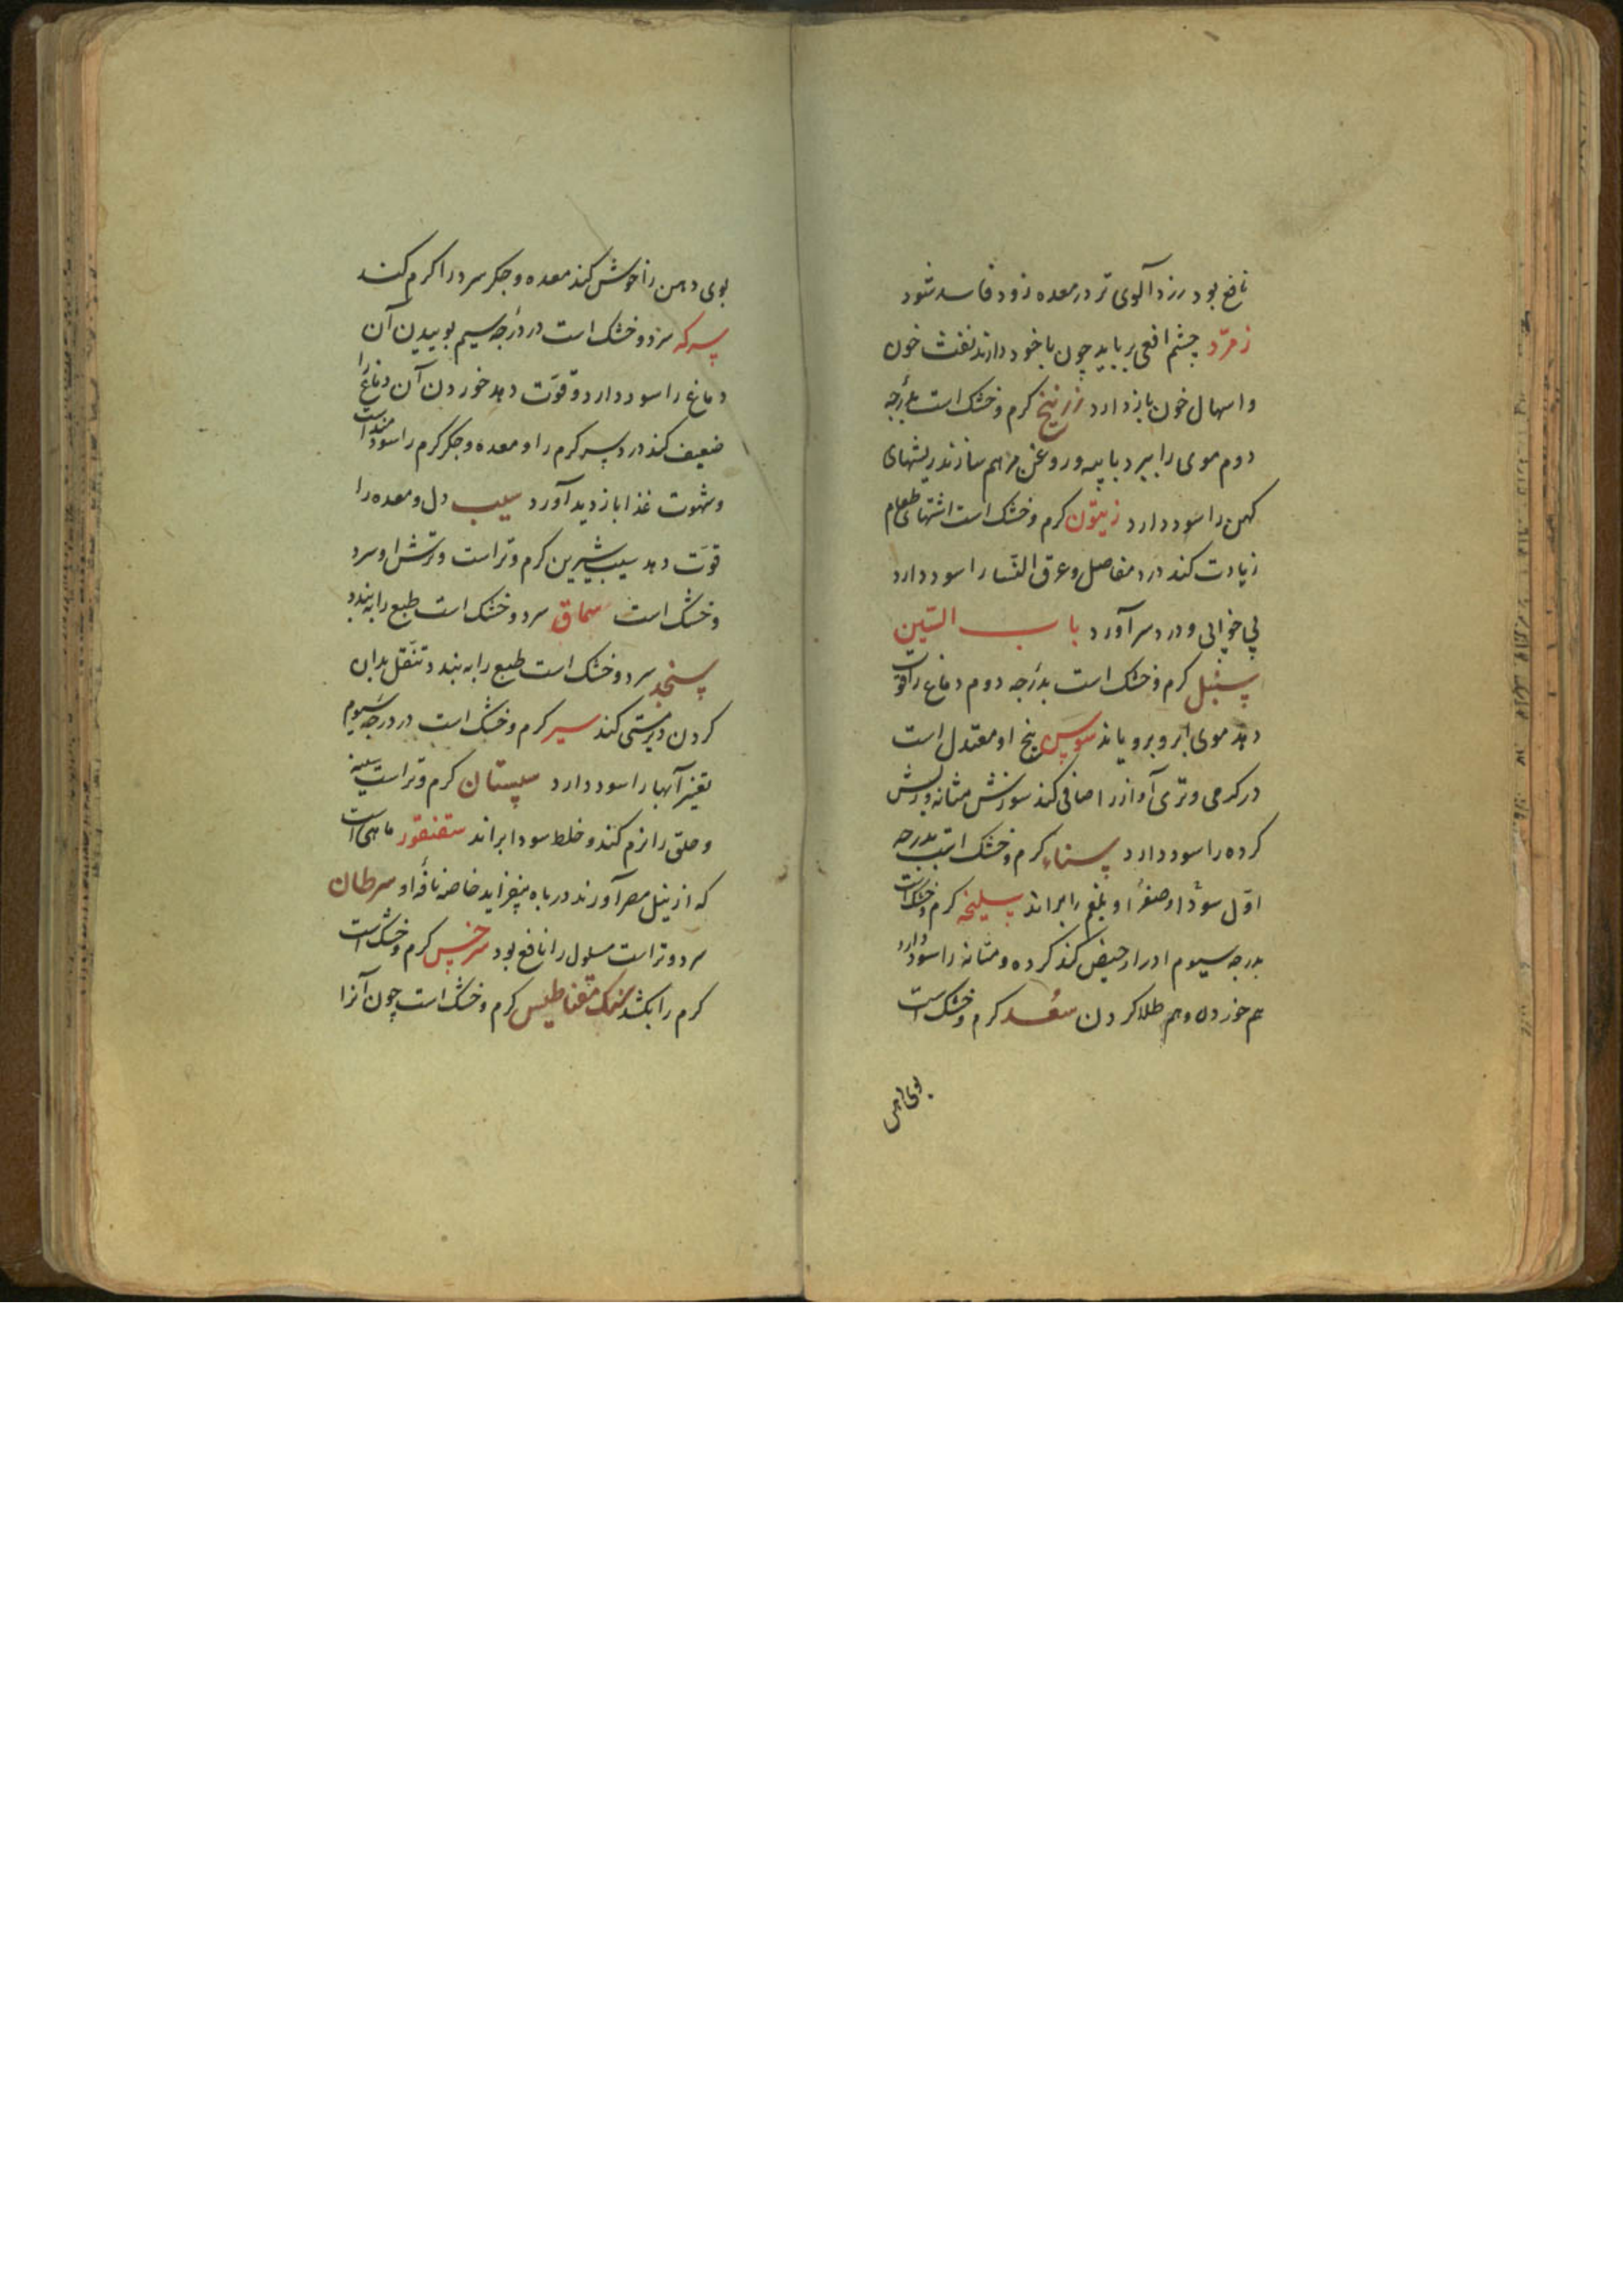 نافع بود زردآلوی تر در معده زود فاسد شود
زمرّد چشم افعی برباید چون با خود دارند نفث خون
و اسهال خون باز دارد زرنیخ کرم و خشک است بدرجه
دوم موی را ببرد با پیه و روغن مرهم سازند ریشهای
کهن را سود دارد زیتون کرم و خشک است اشتهای طعام
زیادت کند درد مفاصل و عرق النّسا را سود دارد
بی خوابی و درد سر آورد باب السّین
سنبل کرم و خشک است بدرجه دوم دماغ را قوّت
دهد موی ابرو برویاند سوس بیخ او معتدل است
در کرمی و تری آواز را صافی کند سوزش مثانه و ریش
کرده را سود دارد سناء کرم و خشک است بدرجه
اوّل سودا و صفرا و بلغم را براند سلیخه کرم و خشک است
بدرجه سیوم ادرار حیض کند کرده و مثانه را سود دارد
هم خوردن و هم طلا کردن سُعد کرم و خشک است
بوی دهن
بوی دهن را خوش کند معده و جکر سرد را کرم کند
سرکه سرد و خشک است در درجه سیم بوییدن آن
دماغ را سود دارد و قوّت دهد خوردن آن دماغ را
ضعیف کند درد سر کرم را و معده و جکر کرم را سودمند است
و شهوت غذا باز دید آورد سیب دل و معده را
قوّت دهد سیب شیرین کرم و تر است و ترش او سرد
و خشک است سماق سرد و خشک است طبع را به بندد
سنجد سرد و خشک است طبع را به بندد و تنقل بدان
کردن دیر مستی کند سیر کرم و خشک است در درجه سیوم
تغیّر آبها را سود دارد سپستان کرم و تر است سینه
و حلق را نرم کند و خلط سودا براند سقنقور ماهی است
که از نیل مصر آورند در باه بیفزاید خاصه نافه او سرطان
سرد و تر است مسلول را نافع بود سرخس کرم و خشک است
کرم را بکشد سنک مقناطیس کرم و خشک است چون آنرا